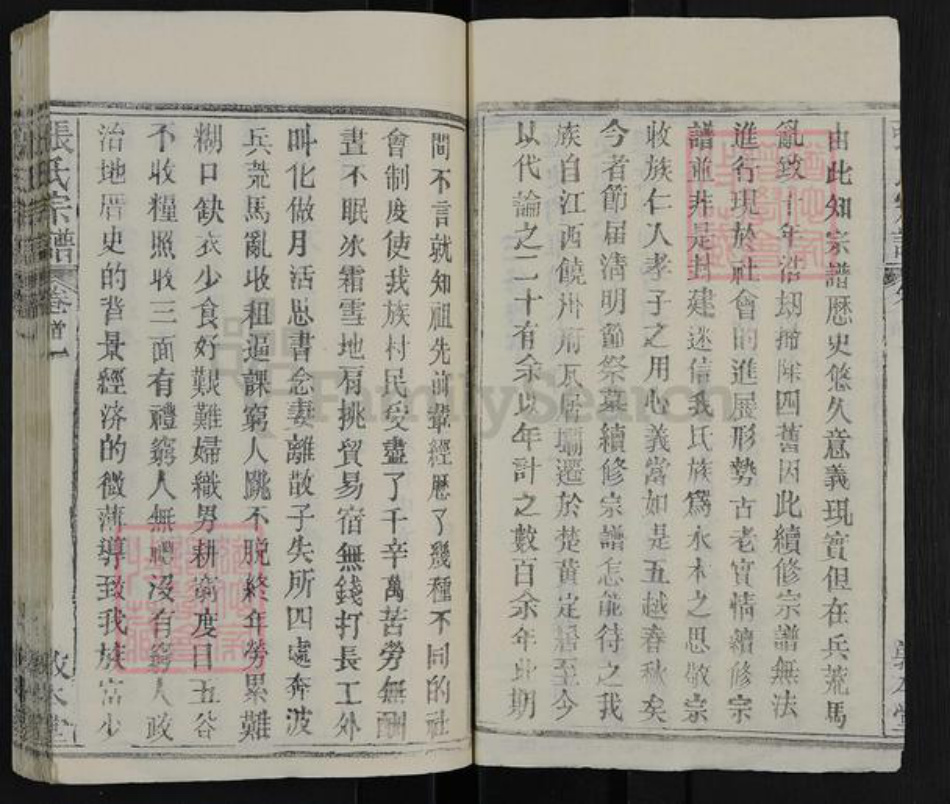 由此知宗譜歷史悠久意義現實但在兵荒馬
亂致十年浩劫掃除四舊因此續修宗譜無法
進行現於社會的進展形勢古老實情續修宗
譜並非是封建迷信我氏族爲水木之思敬宗
收族仁人孝子之用心義當如是五越春秋矣
今者節届清明節祭墓續修宗譜怎能待之我
族自江西饒州府瓦屑壩遷於楚黃定居至今
以代論之二十有余以年計之數百余年此期
間不言就知祖先前輩經歷了幾種不同的社
會制度使我族村民受盡了千辛萬苦勞無酬
晝不眠冰霜雪地肩挑貿易宿無錢打長工外
叫化做月活思書念妻離散子失所四處奔波
兵荒馬亂收租逼課窮人跳不脱終年勞累難
糊口缺衣少食好艱難婦織男耕窮度日五谷
不收糧照收三面有禮窮人無禮没有窮人政
治地厝史的背景經济的微薄導致我族富少
張氏宗譜 卷首一 敦本堂
FamilySearch